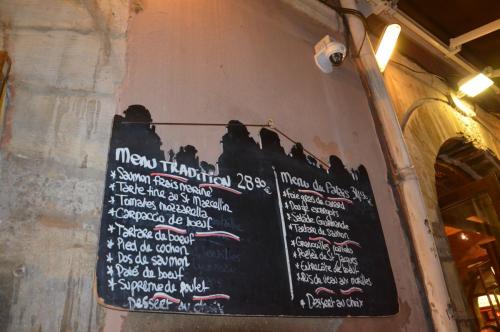 Menu TRADITION 28.90€
* Saumon frais mariné
* Tarte fine au St Marcellin
* Tomates mozzarella
* Carpaccio de boeuf
* Tartare de boeuf
* Pied de cochon
* Dos de saumon
* Pavé de boeuf
* Suprême de poulet
Dessert au choix
Menu du Palais
* Foie gras de canard
* Salade Gourmande
* Tartare de saumon
* Grenouilles
* Poêlée de St Jacques
* Entrecôte de boeuf
* Ris de veau aux morilles
* Dessert au choix